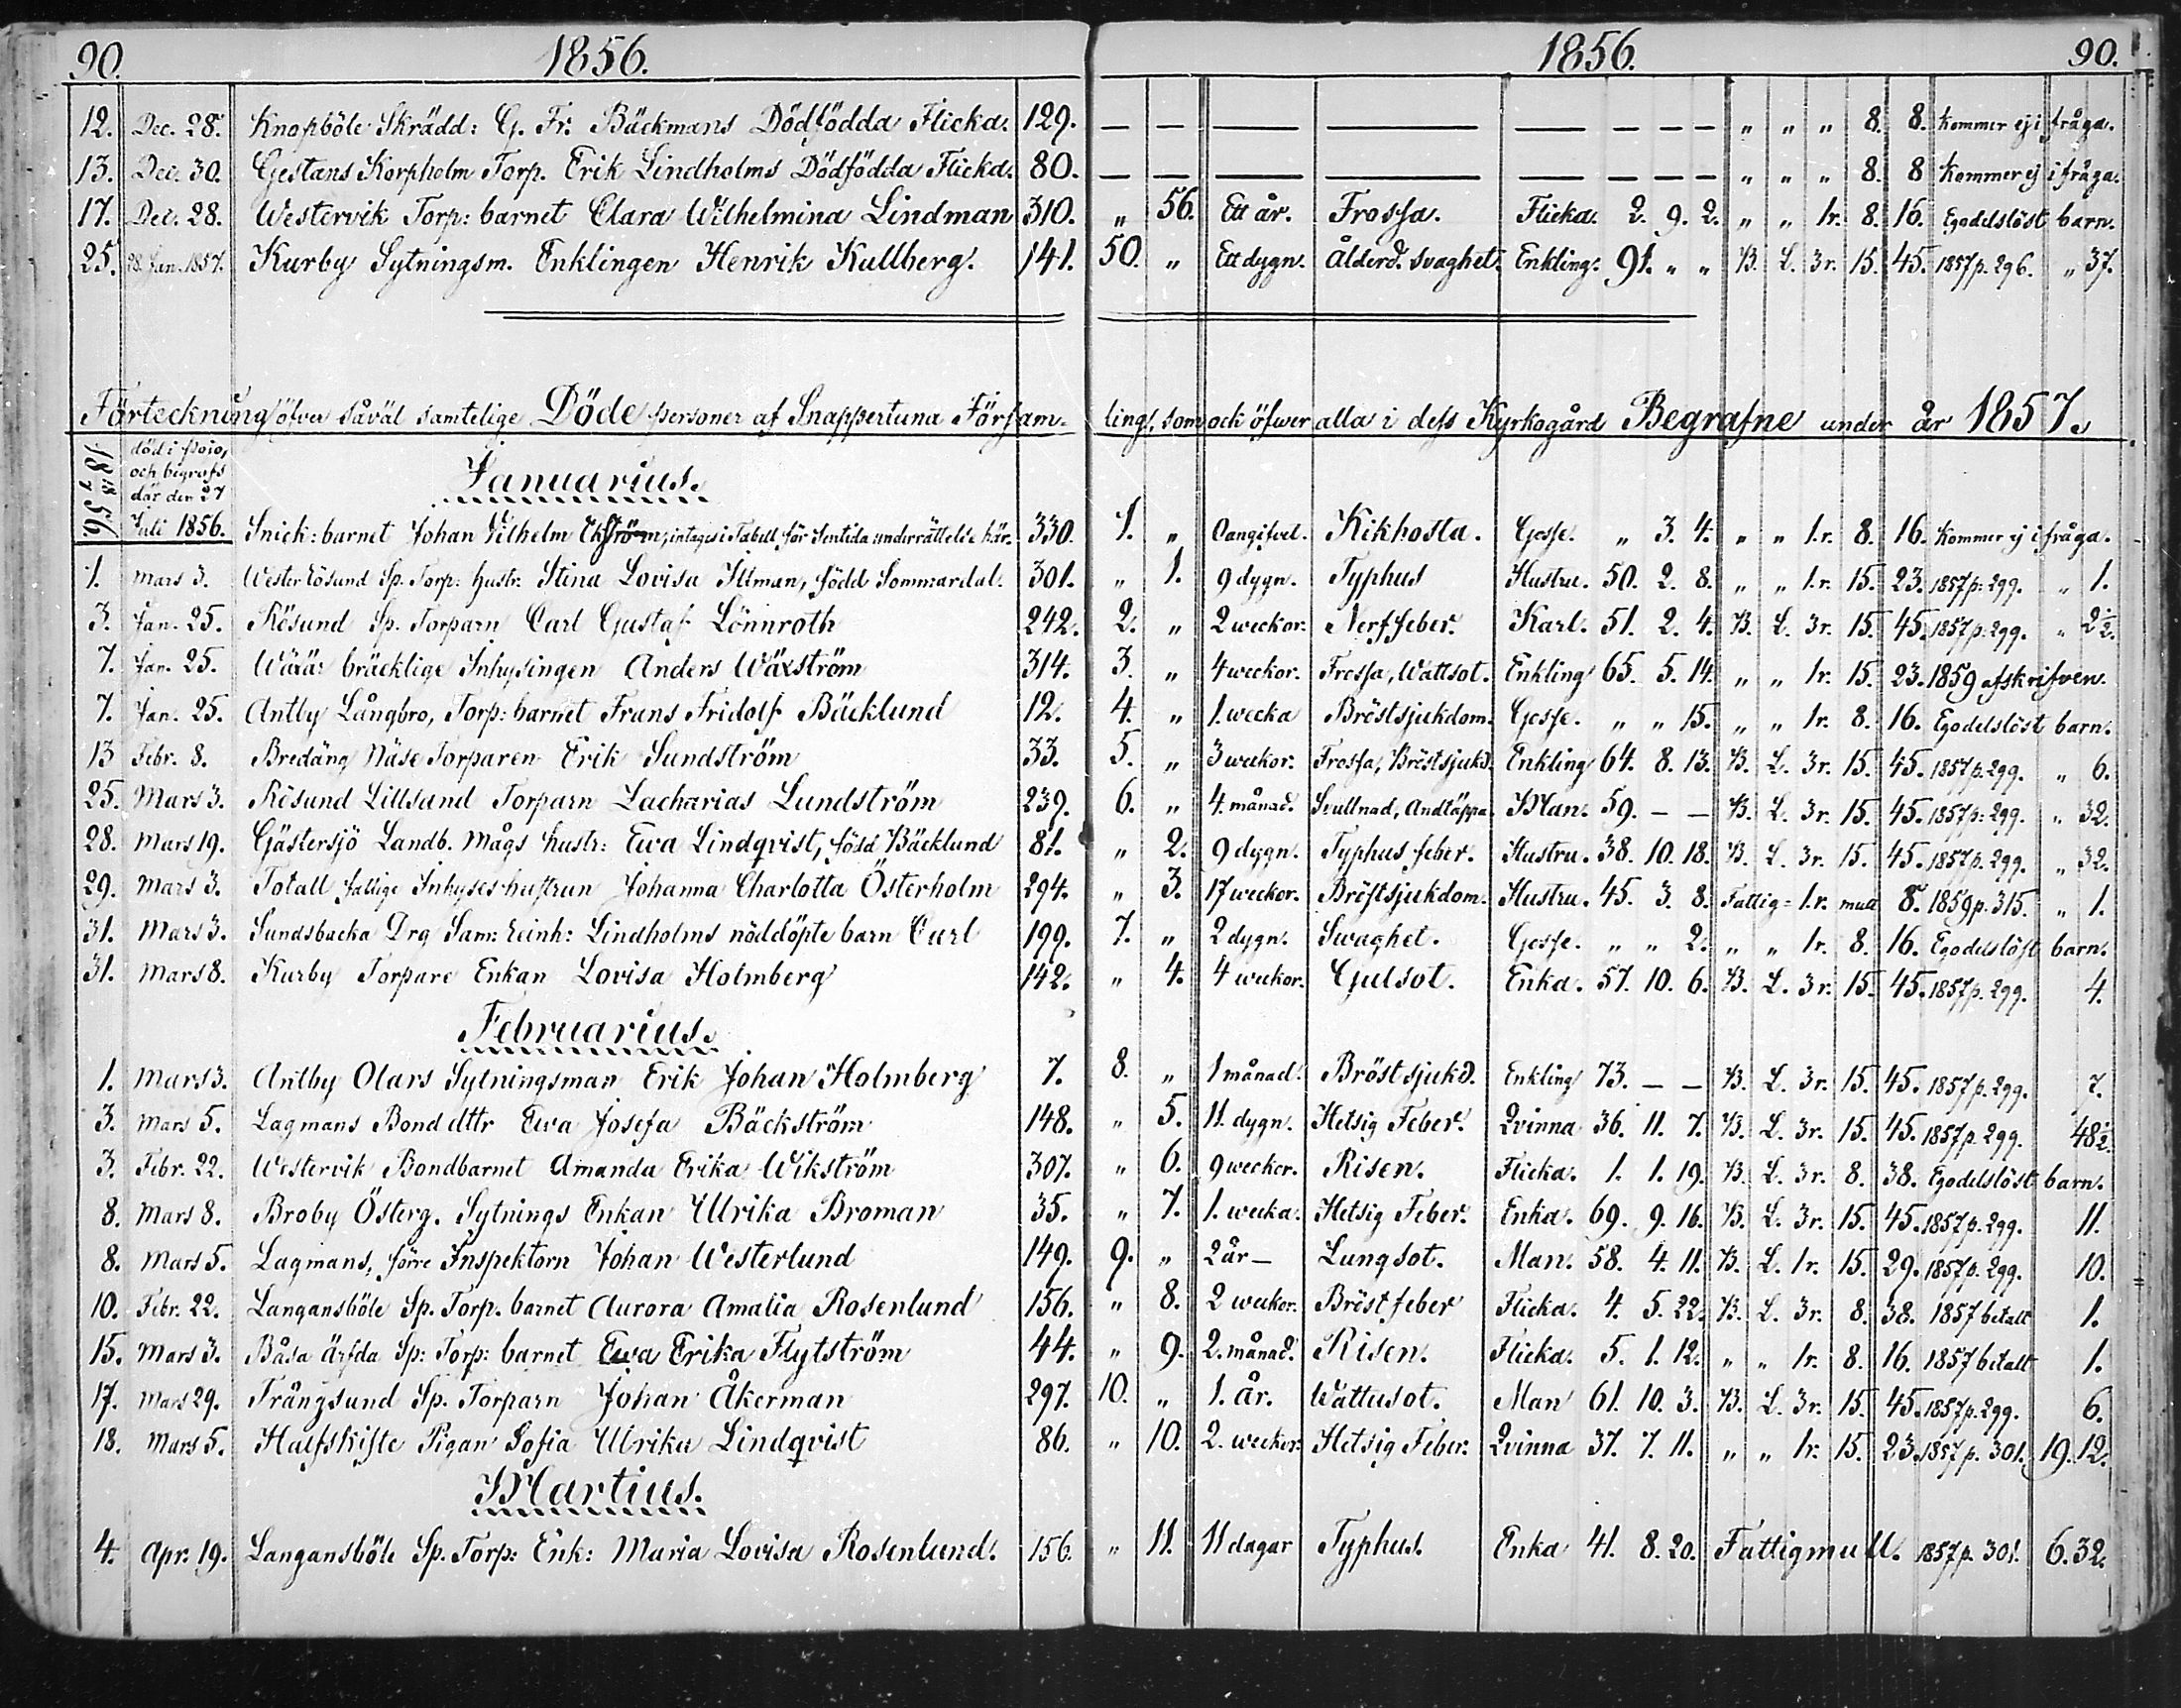 90. 1856. 1856. 90.
12. Dec. 28. Knopböle Skrädd: G. Fr. Bäckmans Dödfödda Flicka. 129. — — — — — — — — " " " 8. 8. Kommer ej i fråga.
13. Dec. 30. Gestans Korpholm Torp. Erik Lindholms Dödfödda Flicka. 80. — — — — — — — — " " " 8. 8 Kommer ej i fråga.
17. Dec. 28. Westervik Torp: barnet Clara Wilhelmina Lindman 310. " 56. Ett år. Frossa. Flicka. 2. 9. 2. " " 1r. 8. 16. Egodelslöst barn.
25. 28. Jan. 1857. Kurby Sytningsm. Enklingen Henrik Kullberg. 141. 50. " Ett dygn. Ålderd. svaghet. Enkling. 91. " " B. L. 3r. 15. 45. 1857 p. 296. " 37.
Förteckning öfver såväl samtelige Döde personer af Snappertuna Församlings, som ock öfwer alla i dess Kyrkogård Begrafne under år 1857.
död i
och begrafs
där den 27
Januarius.
Juli 1856. Snick: barnet Johan Vilhelm Ekström, intages i Tabell för sentida underrättelse här. 330. 1. " Oangifvel. Kikhosta. Gosse. " 3. 4. " " 1.r. 8. 16. Kommer ej i fråga.
1. Mars 3. Wester Rösund Sp. Torp: hustr. Stina Lovisa Illman, född Sommardal. 301. " 1. 9 dygn. Typhus Hustru. 50. 2. 8. " " 1.r. 15. 23. 1857 p: 299. " 1.
3. Jan. 25. Rösund Sp. Torparn Carl Gustaf Lönnroth 242. 2. " 2 weckor. Nerffeber. Karl. 51. 2. 4. B. L. 3r. 15. 45. 1857 p: 299. " 2½.
7. Jan. 25. Wää: bräcklige Inhysingen Anders Wäxström 314. 3. " 4 weckor. Frossa, Wattsot. Enkling 65. 5. 14. " " 1r. 15. 23. 1859 afskrifven.
7. Jan. 25. Antby Långbro, Torp: barnet Frans Fridolf Bäcklund 12. 4. " 1. wecka Bröstsjukdom. Gosse. " " 15. " " 1r. 8. 16. Egodelslöst barn.
13 Febr. 8. Bredäng Näse Torparen Erik Sundström 33. 5. " 3 weckor. Frossa, Bröstsjukd. Enkling 64. 8. 13. B. L. 3r. 15. 45. 1857 p. 299. " 6.
25. Mars 3. Rösund Lillsand Torparn Zacharias Lundström 239. 6. " 4. månad. Svullnad, Andtäppa. Man. 59. — — B. L. 3r. 15. 45. 1857 p: 299. " 32.
28. Mars 19. Gästersjö Landb. mågs hustr: Ewa Lindqvist, född Bäcklund 81. " 2. 9 dygn. Typhus feber. Hustru. 38. 10. 18. B. L. 3r. 15. 45. 1857 p. 299. " 32.
29. Mars 3. Totall fattige Inhyses hustrun Johanna Charlotta Österholm 294. " 3. 17 weckor. Bröstsjukdom. Hustru. 45. 3. 8. Fattig = 1.r. mull 8. 1859 p. 315. " 1.
31. Mars 3. Sundsbacka Drg Sam: Reinh: Lindholms nöddöpte barn Carl 199. 7. " 2 dygn. Swaghet. Gosse. " " 2. " " 1r. 8. 16. Egodelslöst barn.
31. Mars 8. Kurby Torpare Enkan Lovisa Holmberg 142. " 4. 4 weckor. Gulsot. Enka. 57. 10. 6. B. L. 3r. 15. 45. 1857 p. 299. 4.
Februarius.
1. Mars 3. Antby Olars Sytningsman Erik Johan Holmberg 7. 8. " 1 månad. Bröstsjukd. Enkling 73. — — B. L. 3r. 15. 45. 1857 p. 299. 7.
3. Mars 5. Lagmans Bond dttr Ewa Josefa Bäckström 148. " 5. 11. dygn. Hetsig Feber. Qvinna 36. 11. 7. B. L. 3r. 15. 45. 1857 p. 299. 48½.
3. Febr. 22. Westervik Bondbarnet Amanda Erika Wikström 307. " 6. 9 weckor. Risen. Flicka. 1. 1. 19. B. L. 3r. 8. 38. Egodelslöst barn.
8. Mars 8. Broby Österg. Sytnings Enkan Ulrika Broman 35. " 7. 1. wecka. Hetsig Feber. Enka. 69. 9. 16. B. L. 3r. 15. 45. 1857 p. 299. 11.
8. Mars 5. Lagmans, förre Inspektorn Johan Westerlund 149. 9. " 2 år — Lungsot. Man. 58. 4. 11. B. L. 1r. 15. 29. 1857 p. 299. 10.
10. Febr. 22. Langansböle Sp. Torp. barnet Aurora Amalia Rosenlund 156. " 8. 2 weckor. Bröstfeber Flicka. 4. 5. 22. B. L. 3r. 8. 38. 1857 betalt 1.
15. Mars 3. Båsa Ärfda Sp: Torp: barnet Ewa Erika Flytström 44. " 9. 2. månad. Risen. Flicka. 5. 1. 12. " " 1r. 8. 16. 1857 betalt 1.
17. Mars 29. Trångsund Sp. Torparn Johan Åkerman 297. 10. " 1. år. Wattusot. Man 61. 10. 3. B. L. 3r. 15. 45. 1857 p. 299. 6.
18. Mars 5. Halfskifte Pigan Sofia Ulrika Lindqvist 86. " 10. 2. weckor. Hetsig Feber. Qvinna 37. 7. 11. " " 1r. 15. 23. 1857 p. 301. 19. 12.
Martius.
4. Apr. 19. Langansböle Sp. Torp: Enk: Maria Lovisa Rosenlund. 156. " 11. 11 dagar Typhus. Enka 41. 8. 20. Fattigmull. 1857 p. 301. 6. 32.